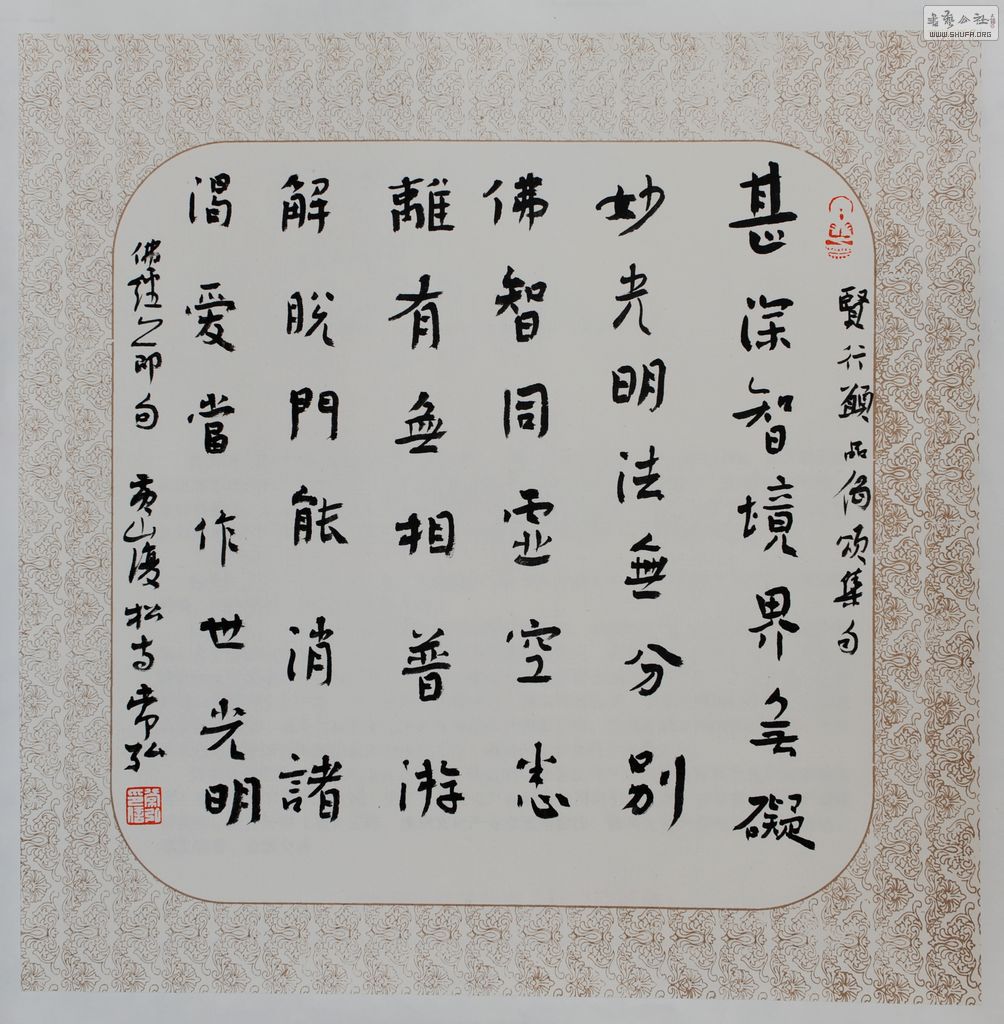 賢行願品偈頌集句
甚深智境界無礙
妙光明法無分別
佛智同虛空悉
離有無相普游
解脫門能消諸
渴愛當作世光明
佛經之即句 黃山優松寺常弘
WWW.SHUFA.ORG